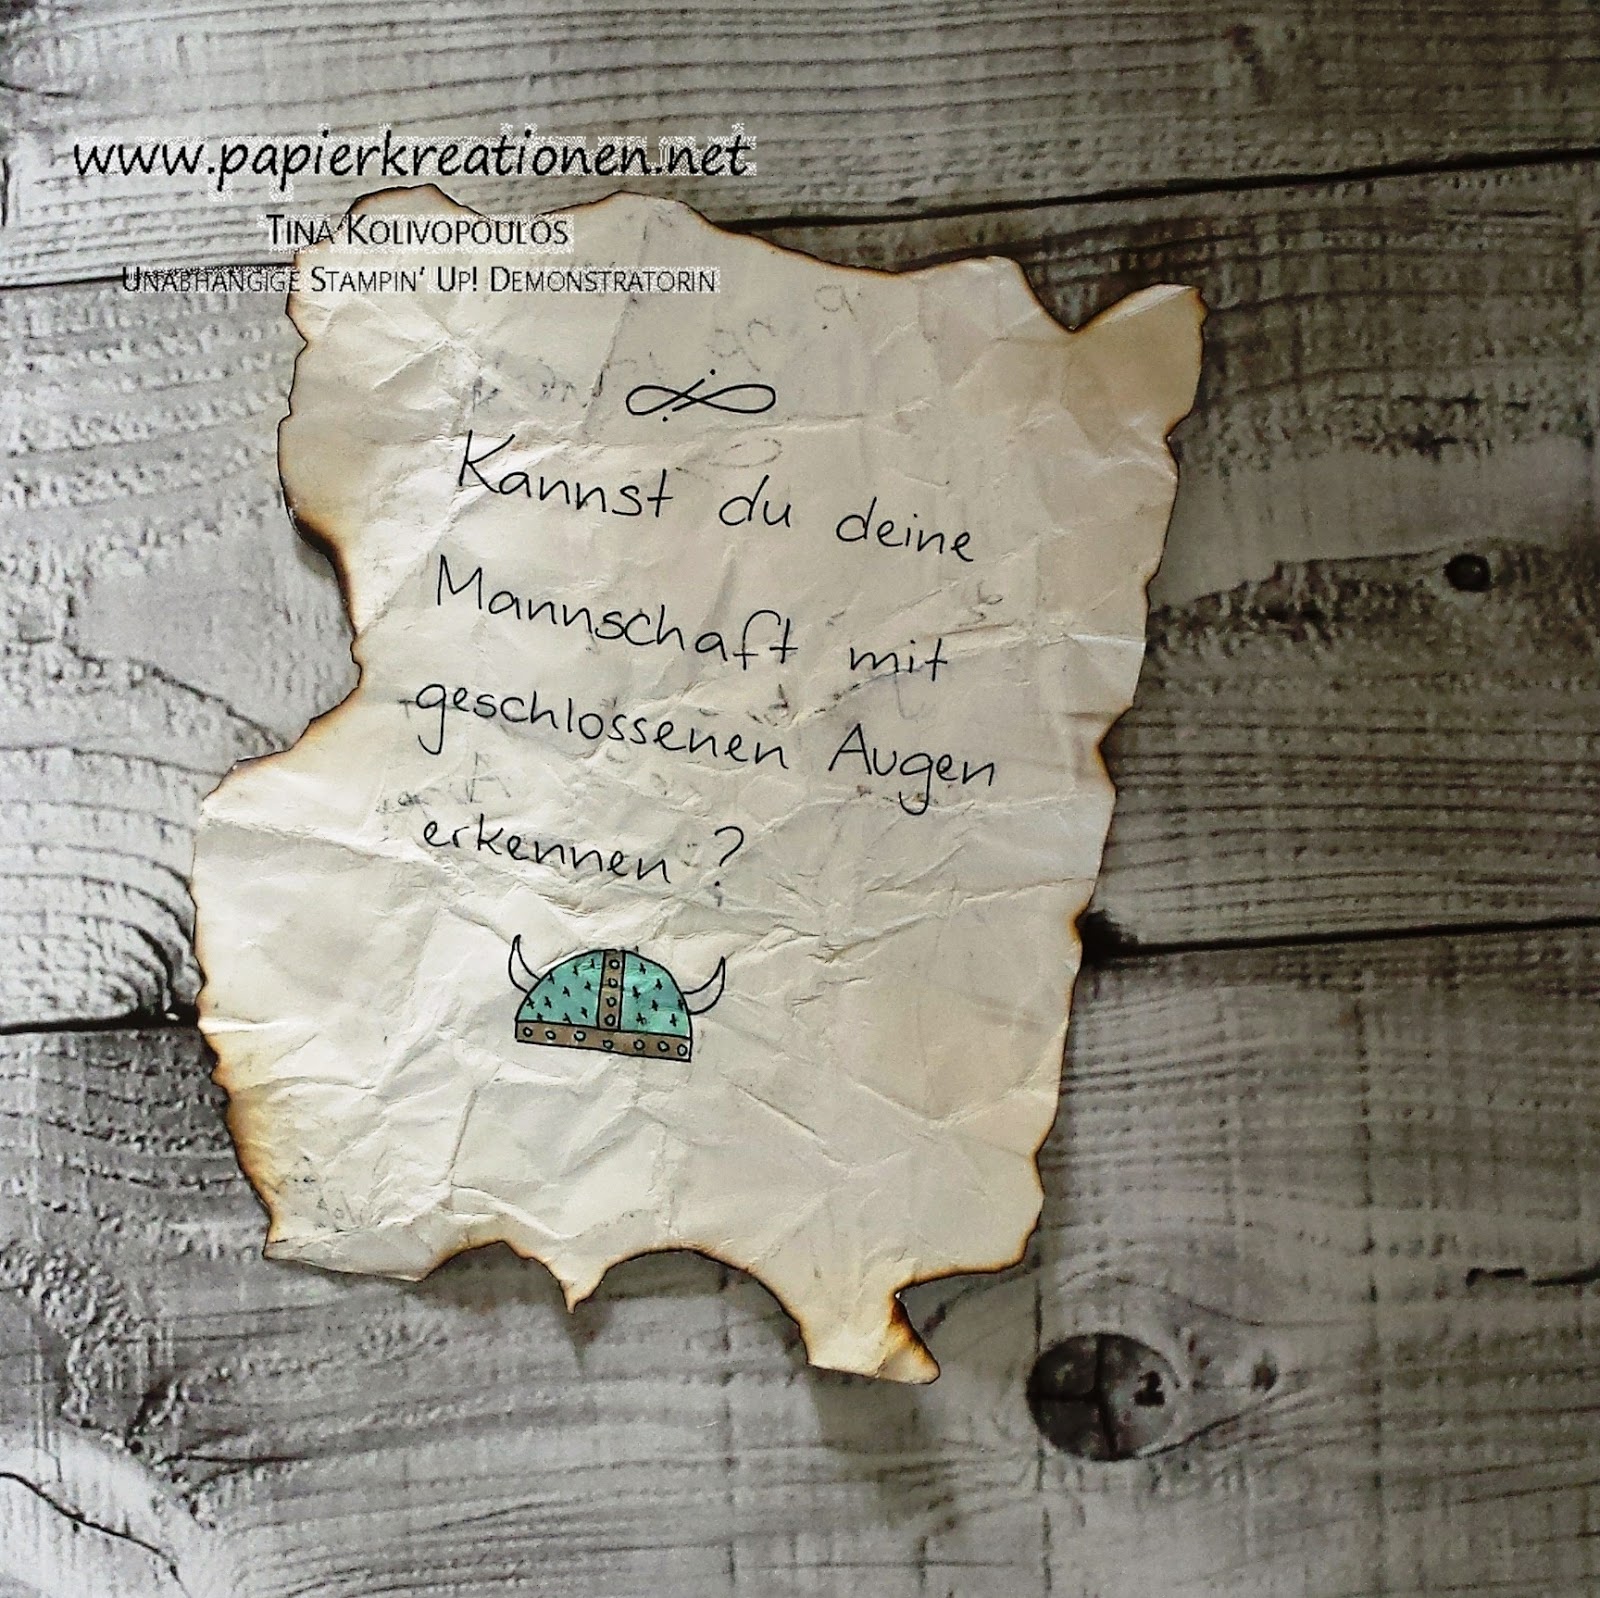 www.papierkreationen.net
Tina Kolivopoulos
Unabhängige Stampin' Up! Demonstratorin
Kannst du deine
Mannschaft mit
geschlossenen Augen
erkennen ?